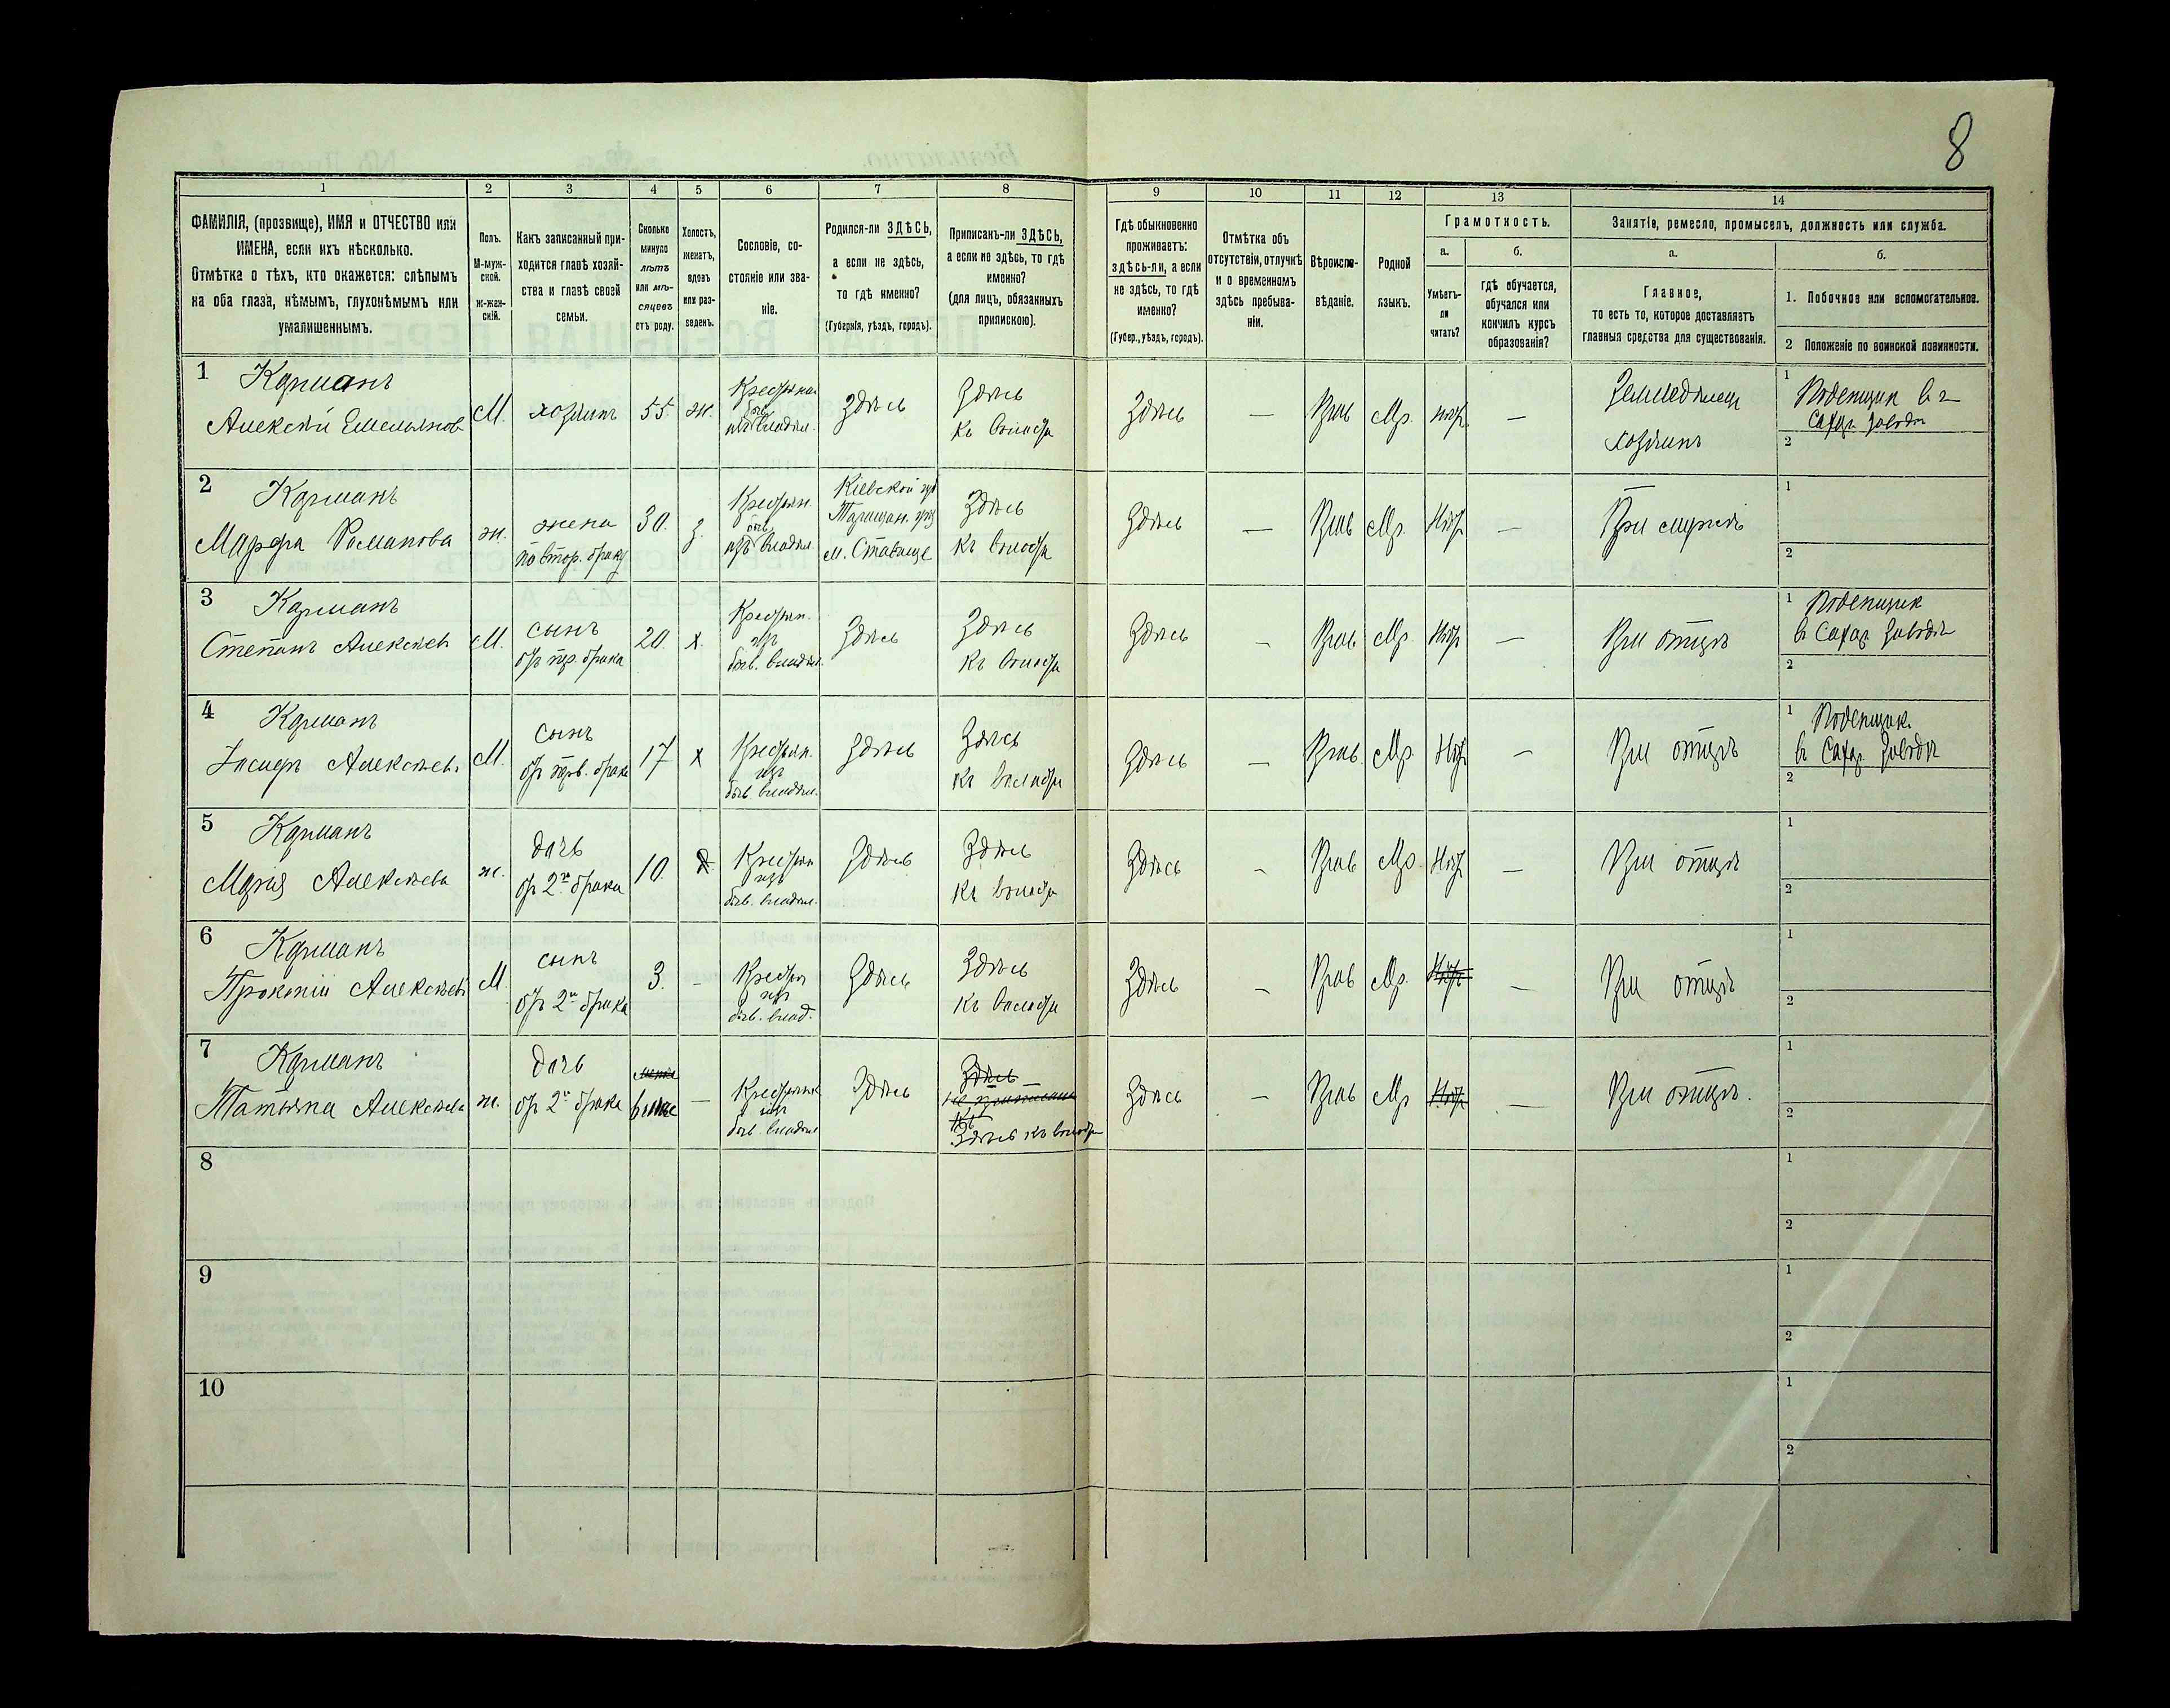 8
1 2 3 4 5 6 7 8 9 10 11 12 13 14
ФАМИЛІЯ, (прозвище), ИМЯ и ОТЧЕСТВО или
ИМЕНА, если ихъ нѣсколько.
Отмѣтка о тѣхъ, кто окажется: слѣпымъ
на оба глаза, нѣмымъ, глухонѣмымъ или
умалишеннымъ.
Полъ.
М-муж-
ской.
Ж-жен-
скій.
Какъ записанный при-
ходится главѣ хозяй-
ства и главѣ своей
семьи.
Сколько
минуло
лѣтъ
или мѣ-
сяцевъ
отъ роду.
Холостъ,
женатъ,
вдовъ
или раз-
веденъ.
Сословіе, со-
стояніе или зва-
ніе.
Родился-ли ЗДѢСЬ,
а если не здѣсь,
то гдѣ именно?
(Губернія, уѣздъ, городъ).
Приписанъ-ли ЗДѢСЬ,
а если не здѣсь, то гдѣ
именно?
(для лицъ, обязанныхъ
припискою).
Гдѣ обыкновенно
проживаетъ:
здѣсь-ли, а если
не здѣсь, то гдѣ
именно?
(Губер., уѣздъ, городъ).
Отмѣтка объ
отсутствіи, отлучкѣ
и о временномъ
здѣсь пребыва-
ніи.
Вѣроиспо-
вѣданіе.
Родной
языкъ.
Грамотность.
а.
Умѣетъ-
ли
читать?
б.
гдѣ обучается,
обучался или
кончилъ курсъ
образованія?
Занятіе, ремесло, промыселъ, должность или служба.
а.
Главное,
то есть то, которое доставляетъ
главныя средства для существованія.
б.
1. Побочное или вспомогательное.
2 Положеніе по воинской повинности.
1 Карманъ
Алексѣй Емельянов
М. хозяинъ 55. ж.
Крестьян
быв.
изъ владѣл.
Здѣсь
Здѣсь
къ волости
Здѣсь — Прав Мр. нѣт —
Земледѣлец
хозяинъ
1 Поденщик в
Сахар заводѣ
2
2 Карманъ
Марфа Романова
ж.
жена
по втор. браку
30. з.
Крестьян.
быв.
изъ владѣл.
Кіевской губ
Таращан. уѣз
м. Ставище
Здѣсь
къ волости
Здѣсь — Прав Мр. Нѣт — При мужѣ
1
2
3 Карманъ
Степанъ Алексѣев
М.
сынъ
от пер. брака
20. х.
Крестьян.
изъ
быв. владѣл.
Здѣсь
Здѣсь
къ волости
Здѣсь — Прав Мр. Нѣт — При отцѣ
1 Поденщик
в Сахар заводѣ
2
4 Карманъ
Алексѣев
М.
сынъ
от перв. брака
17 х
Крестьян.
изъ
быв. владѣл.
Здѣсь
Здѣсь
къ волости
Здѣсь — Прав. Мр Нѣт — При отцѣ
1 Поденщик.
в Сахар. заводѣ
2
5 Карманъ
Марія Алексѣева
ж.
дочь
от 2го брака
10.
Крестьян
изъ
быв. владѣл.
Здѣсь
Здѣсь
къ волости
Здѣсь - Прав Мр Нѣт — При отцѣ
1
2
6 Карманъ
Прокопій Алексѣев
М.
сынъ
от 2го брака
3. -
Крестьян
изъ
быв. влад.
Здѣсь
Здѣсь
къ волости
Здѣсь - Прав Мр. Нѣт — При отцѣ
1
2
7 Карманъ
Татьяна Алексѣева
ж.
дочь
от 2го брака
—
Крестьян
изъ
быв. владѣл
Здѣсь
Здѣсь
не приписана
Здѣсь къ волости
Здѣсь - Прав Мр Нѣт — При отцѣ.
1
2
8
1
2
9
1
2
10
1
2